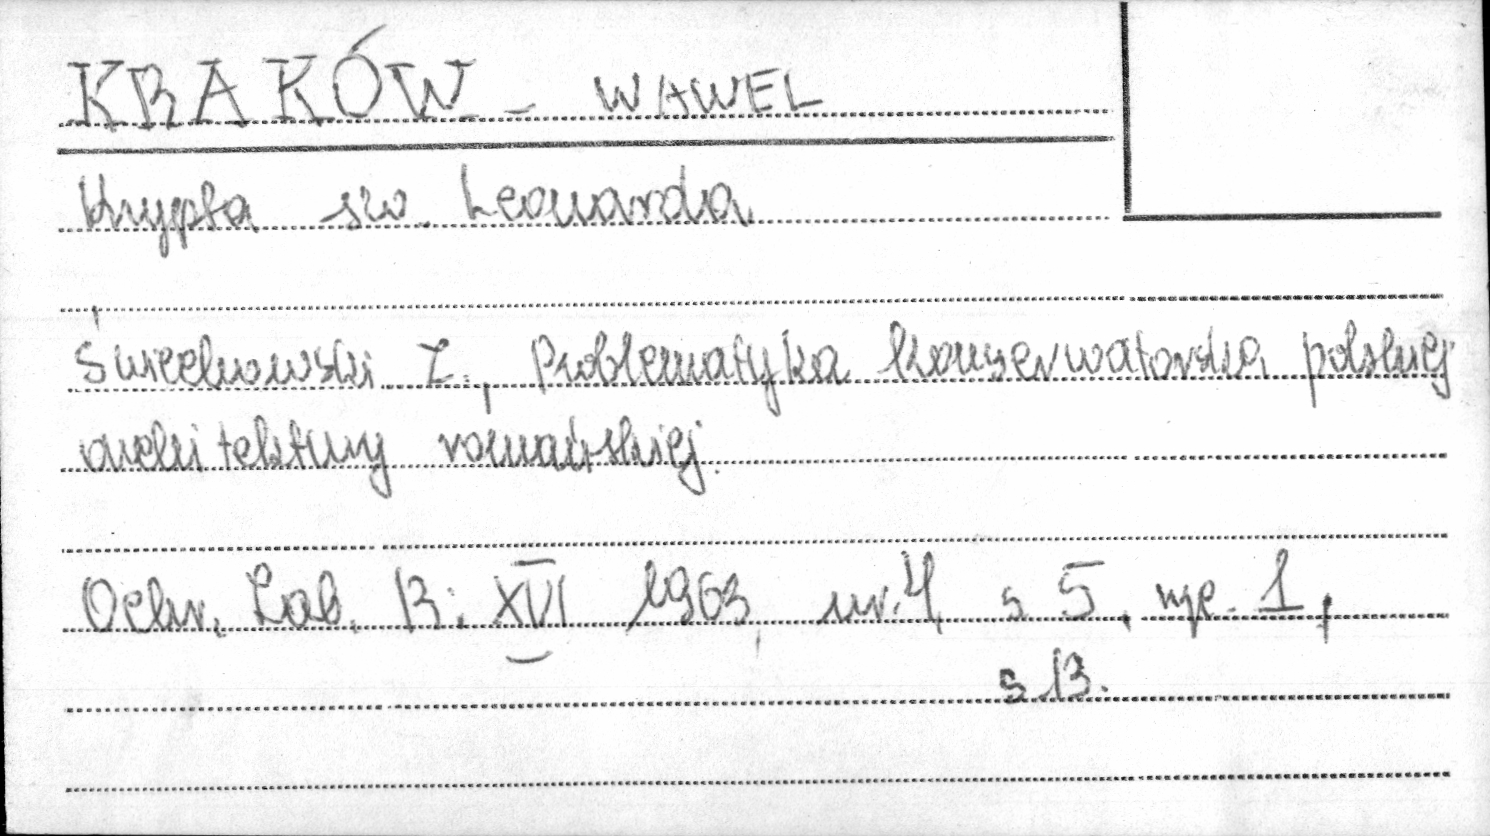 KRAKÓW - WAWEL
Krypta św. Leonarda
Świechowski Z., Problematyka konserwatorska polskiej
architektury romańskiej.
Ochr. Zab. R: XVI 1963, nr. 4 s 5, ryc. 1,
s 13.